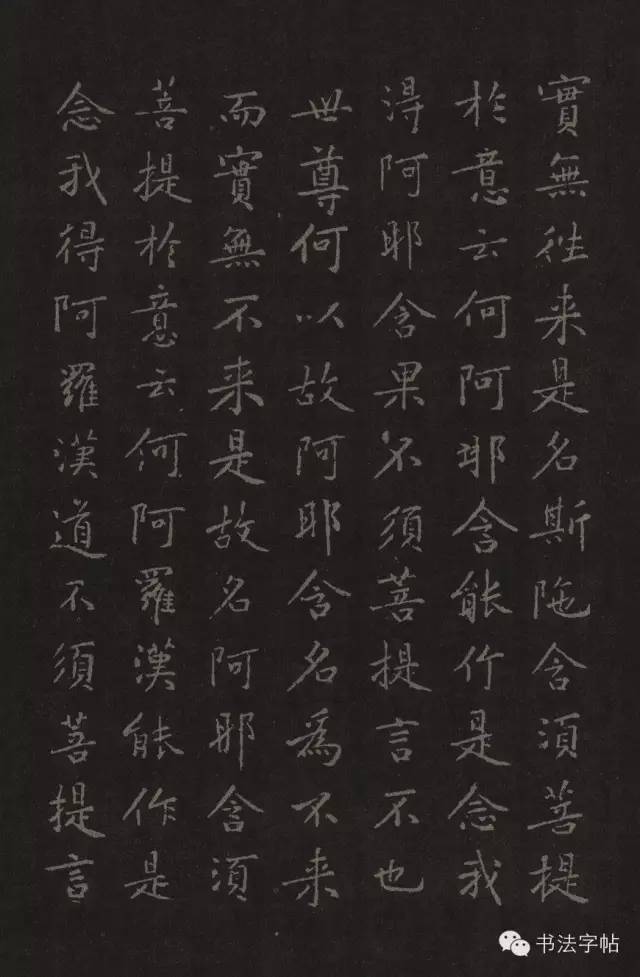 實無往来是名斯陁含須菩提
於意云何阿耶含能作是念我
得阿耶含果不須菩提言不也
世尊何以故阿耶含名為不来
而實無不来是故名阿耶含須
菩提於意云何阿羅漢能作是
念我得阿羅漢道不須菩提言
书法字帖